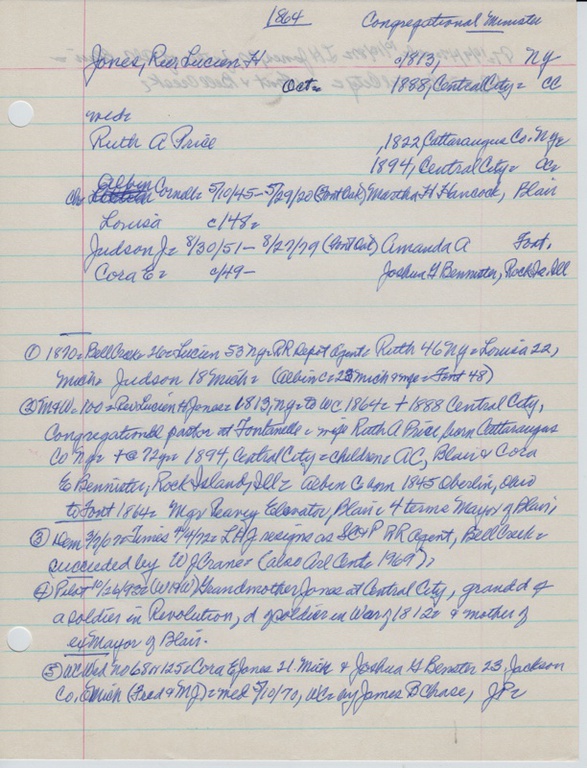 1864 Congregational Minister
Jones, Rev Lucien H c/1813, Ny
Oct= 1888, Central City= CC
med=
Ruth A Price ,1822 Cattaraugus Co. Ny=
1894, Central City=
ch= Albin Cornell= 5/10/45- 5/29/20 (Font Cem) Martha H Hancock, Blair
Louisa c/48=
Judson J= 8/30/51- 8/27/79 (Font Cem) Amanda A Font.
Cora E= c/49- Joshua G Bennister, Rock Is. Ill
① 1870= Bell Creek= Lucien 53 Ny= RR Depot Agent= Ruth 46 Ny= Louisa 22,
Mich= Judson 18 Mich= (Albin C= 23 Mich Font 48)
② 100= Rev Lucien H Jones= 1813, Ny= to WC 1864= + 1888 Central City,
Congregational pastor at Fontanelle= wife Ruth A Price, born Cattaraugus
Co Ny= + @ 72yr= 1894, Central City= children= AC, Blair & Cora
E Bennister, Rock Island, Ill= Albin C born 1845 Oberlin, Ohio
to Font 1864= Mgr Peavey Elevator, Blair= 4 terms Mayor of Blair,
③ Times 4/4/72= LHJ resigns as RR agent, Bell Creek=
succeeded by WJ Crane= (also 1969),
④ Pilot 10/26/92= Grandmother Jones at Central City, grand d of
a soldier in Revolution, d of soldier in War of 1812= & mother of
ex Mayor of Blair.
⑤ WC Wed no 68= 125= Cora E Jones 21 Mich & Joshua G Benster 23, Jackson
Co, Mich (Fred & MJ)= med 5/10/70, WC= by James B Chase, JP=